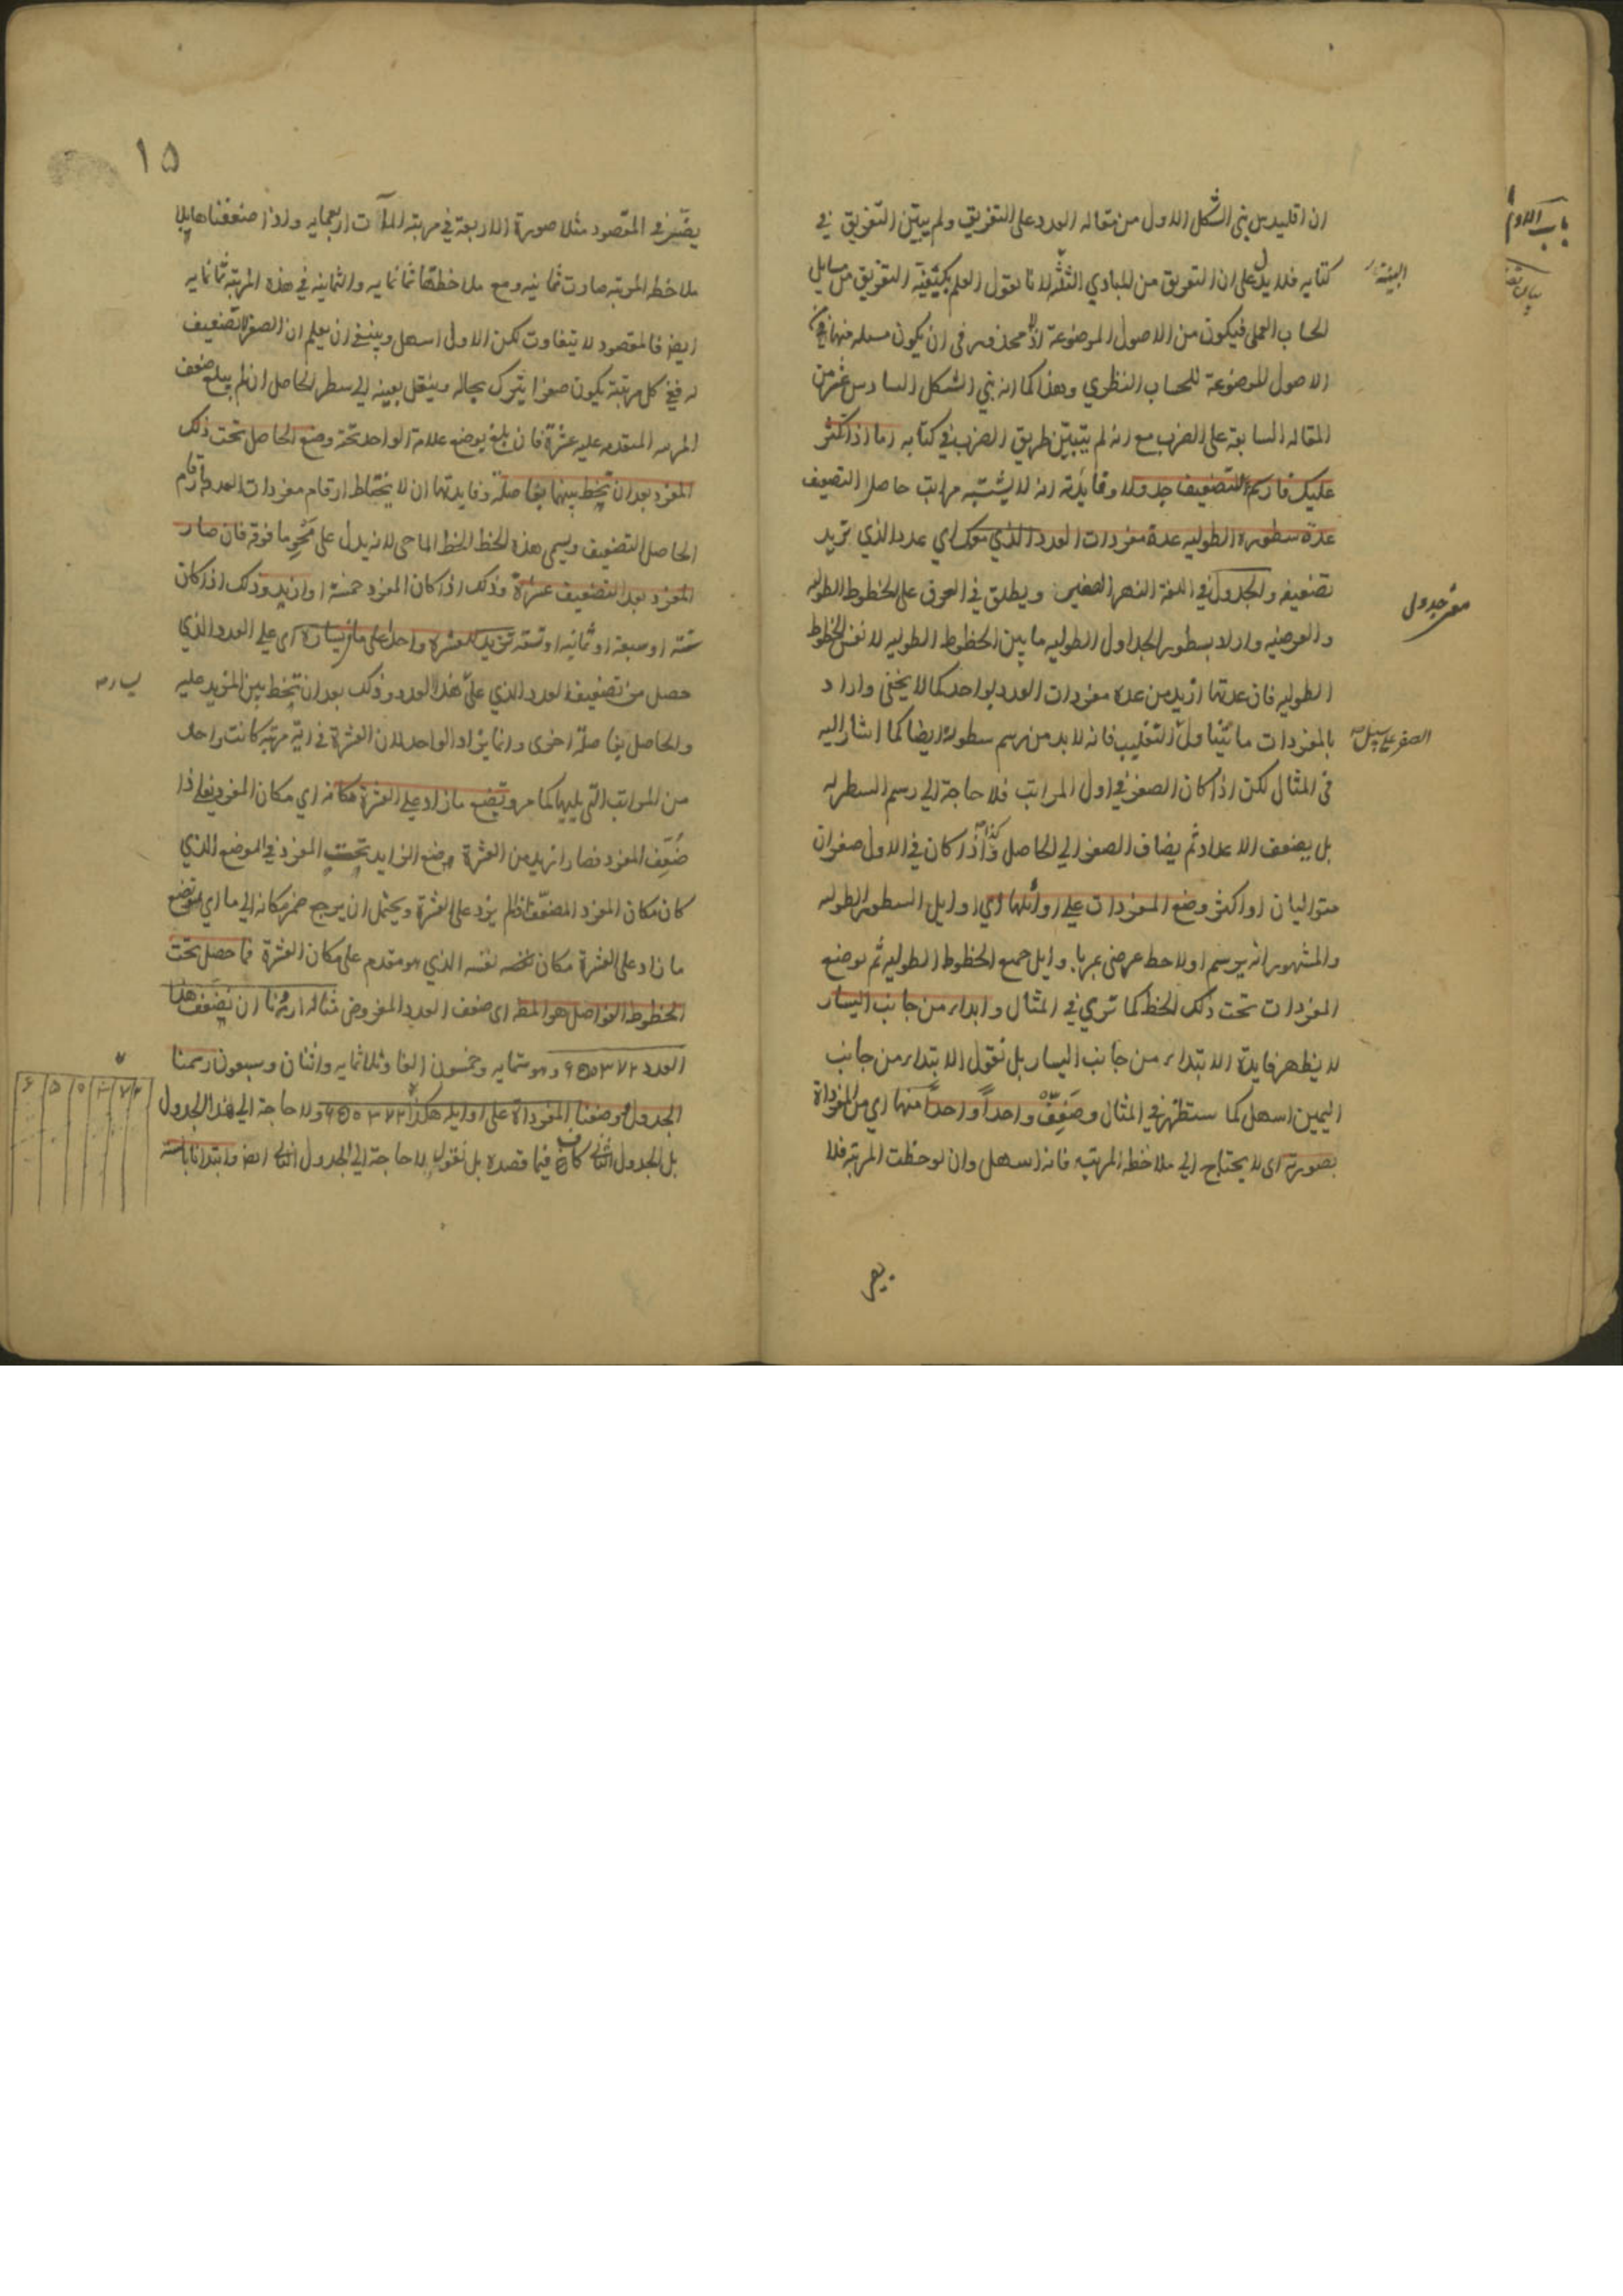 ان اقليدس بنى الشكل الاول من مقالة العدد على التفريق ولم يبين التفريق في
كتابه فلا يدل على ان التفريق من المبادي لانا نقول العلم بكيفية التفريق من مسايل
الحساب العملي فيكون من الاصول الموضوعة اذ لا محذور في ان يكون مسئله منها من
الاصول الموضوعة للحساب النظري وهذا كما انه بنى الشكل السادس عشر من
المقاله السابعة على الضرب مع انه لم يتبين طريق الضرب في كتابه اما اذا كثر
عليك فارسم للتضعيف جدولا وفايدته انه لا يشتبه مراتب حاصل التضعيف
عدة سطوره الطوليه عدة مفردات العدد الذي معك اي عدد الذي تريد
تضعيفه والجدول في اللغة النهر الصغير ويطلق في العرف على الخطوط الطوليه
والعرضيه واراد بسطور الجداول الطوليه ما بين الخطوط الطوليه لا نفس الخطوط
الطوليه فان عدتها ازيد من عدة مفردات العدد بواحد كما لا يخفى واراد
بالمفردات ما يتناول التغليب فانه لا بد من رسم سطور له ايضا كما اشار اليه
في المثال لكن اذا كان الصفر في اول المراتب فلا حاجة الى رسم السطر له
بل يضعف الاعداد ثم يضاف الصفر الى الحاصل وكذا اذا كان في الاول صفران
متواليان او اكثر وضع المفردات على اوائلها اي اوايل السطور الطوليه
والمشهور انه يرسم اولا خط عرضي يمر باوايل جميع الخطوط الطوليه ثم توضع
المفردات تحت ذلك الخط كما ترى في المثال وابداء من جانب اليسار
لا يظهر فايدة الابتداء من جانب اليسار بل نقول الابتداء من جانب
اليمين اسهل كما ستظهر في المثال وضعف واحدا واحدا منها اي من المفرداة
بصورته اي لا يحتاج الى ملاحظة المرتبه فانه اسهل وان لوحظت المرتبة فلا
يضر
معنى جدول
الصفر على سبيل
١٥
يضر في المقصود مثلا صورة الاربعة في مرتبة المآت اربعمايه واذا ضعفناها بلا
ملاحظة المرتبه صارت ثمانيه ومع ملاحظتها ثمانمايه والثمانيه في هذه المرتبة ثمانمايه
ايضا فالمقصود لا يتفاوت لكن الاول اسهل وينبغي ان يعلم ان الصفر لا تضعيف
له ففي كل مرتبة يكون صفرا يترك بحاله وينقل بعينه الى سطر الحاصل ان لم يبلغ ضعف
المرتبه المتقدمه عليه عشرة فان بلغ يوضع علامة الواحد تحته وضع الحاصل تحت ذلك
المفرد بعد ان تخط بينهما بفاصلة وفايدتها ان لا يختلط ارقام مفردات العدد بارقام
الحاصل التضعيف ويسمى هذه الخط الخط الماحي لانه يدل على محو ما فوقه فان صار
المفرد بعد التضعيف عشرة وذلك اذا كان المفرد خمسة او ازيد وذلك اذا كان
ستة او سبعة او ثمانيه او تسعة تزيد للعشره واحدا على ما في يساره اي على العدد الذي
حصل من تضعيف العدد الذي على هذا العدد وذلك بعد ان تخط بين المزيد عليه
والحاصل بفاصلة اخرى وانما يزاد الواحد لان العشرة في اية مرتبة كانت واحد
من المراتب التي يليها كما مر وتضع ما زاد على العشرة مكانه اي مكان المفرد يعني اذا
ضعف المفرد فصار ازيد من العشرة يوضع الزايد تحت المفرد في الموضع الذي
كان مكان المفرد المضعف اذا لم يزد على العشرة ويحتمل ان يرجع ضمير مكانه الى ما اي توضع
ما زاد على العشرة مكان نفسه الذي هو متقدم على مكان العشرة فما حصل تحت
الخطوط الفواصل هو المط اي ضعف العدد المفروض مثاله اردنا ان نضعف هذا
العدد ٦٥٠٣٧٢ وهو ستمايه وخمسون الفا وثلاثمايه واثنان وسبعون رسمنا
الجدول ووضعنا المفرداة على اوايله هكذا ٦٥٠٣٧٢ ولا حاجة الى هذا الجدول
بل الجدول الثاني كاف فيما قصده بل نقول لا حاجة الى الجدول الثاني ايضا وابتدانا بالستة
٦ ٥ ٠ ٣ ٧ ٢